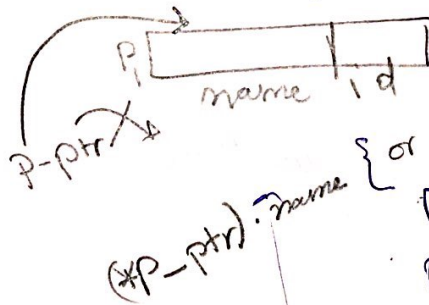 P1
name id
P-ptr
(*P-ptr).name { or